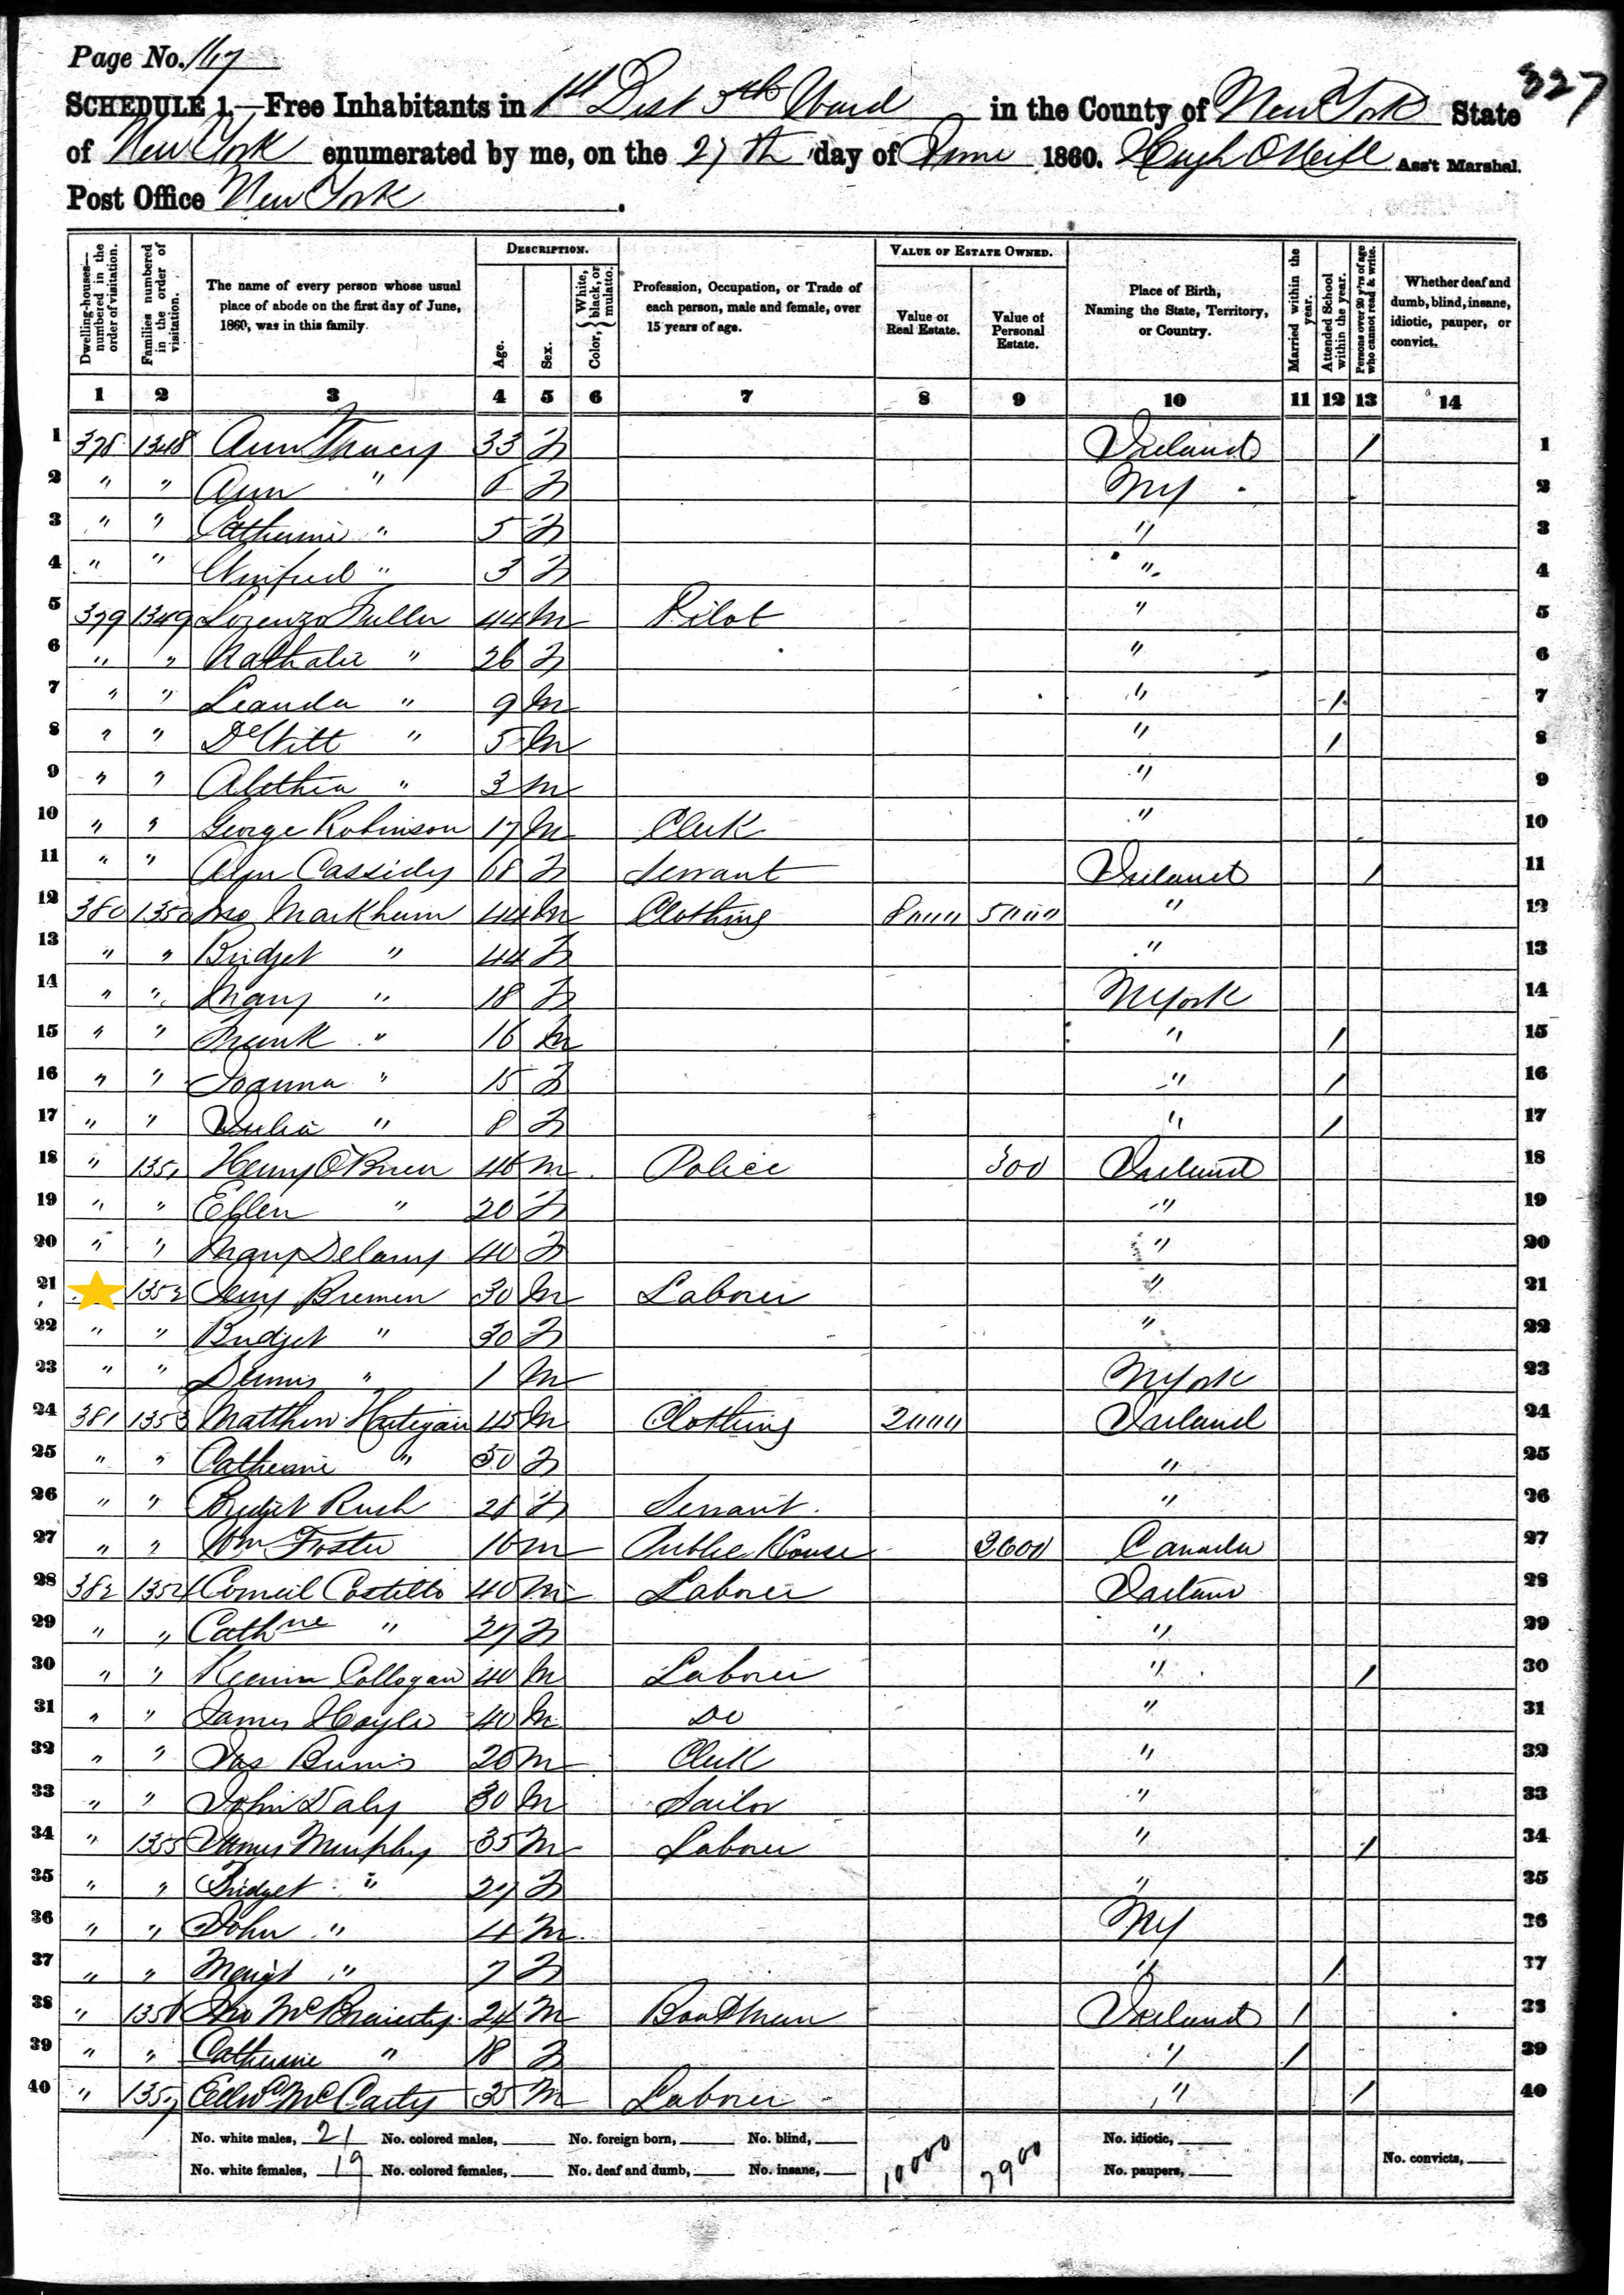 Page No. 167
327
SCHEDULE 1.—Free Inhabitants in 1st Dist 5th Ward in the County of New York State
of New York enumerated by me, on the 27th day of June 1860. Hugh O'Neill Ass't Marshal.
Post Office New York .
DESCRIPTION. VALUE OF ESTATE OWNED.
Dwelling-houses— numbered in the order of visitation.
Families numbered in the order of visitation.
The name of every person whose usual place of abode on the first day of June, 1860, was in this family.
Age.
Sex.
Color, { White, black, or mulatto.
Profession, Occupation, or Trade of each person, male and female, over 15 years of age.
Value of Real Estate.
Value of Personal Estate.
Place of Birth, Naming the State, Territory, or Country.
Married within the year.
Attended School within the year.
Persons over 20 y'rs of age who cannot read & write.
Whether deaf and dumb, blind, insane, idiotic, pauper, or convict.
1 2 3 4 5 6 7 8 9 10 11 12 13 14
1 378 1348 Ann Tracy 33 F Ireland / 1
2 " " Ann " F NY 2
3 " " Catherine " 5 F " 3
4 " " Winifred " 3 F " 4
5 379 1349 Lorenzo Fuller 44 M Pilot " 5
6 " " Nathalie " 26 F " 6
7 " " Leanda " 9 M " / 7
8 " " DeWitt " 5 M " / 8
9 " " Alethia " 3 M " 9
10 " " George Robinson 17 M Clerk " 10
11 " " Ann Cassidy 68 F Servant Ireland / 11
12 380 1350 Jno Markham 44 M Clothing 8000 5000 " 12
13 " " Bridget " 44 F " 13
14 " " Mary " 18 F NYork 14
15 " " Frank " 16 M " / 15
16 " " Joanna " 15 F " / 16
17 " " Julia " 8 F " / 17
18 " 1351 Henry O'Brien 46 M Police 300 Ireland 18
19 " " Ellen " 20 F " 19
20 " " Mary Delany 40 F " 20
21 1352 Jerry Brennen 30 M Laborer " 21
22 " " Bridget " 30 F " 22
23 " " Dennis " 1 M NYork 23
24 381 1353 Matthew Hartigan 45 M Clothing 2000 Ireland 24
25 " " Catherine " 50 F " 25
26 " " Bridget Rush 28 F Servant " 26
27 " " Wm Foster 16 M Public House 2600 Canada 27
28 382 1354 Corneil Costello 40 M Laborer Ireland 28
29 " " Cathne " 27 F " 29
30 " " Collogan 40 M Laborer " / 30
31 " " James Hoyle 40 M Do " 31
32 " " Jas Burns 20 M Clerk " 32
33 " " John Daly 30 M Sailor " 33
34 " 1355 James Murphy 35 M Laborer " / 34
35 " " Bridget " 27 F " 35
36 " " John " 4 M NY 36
37 " " Margt " 7 F " / 37
38 " 1356 Jno 24 M Boatman Ireland / 38
39 " " Catherine " 18 F " / 39
40 " 1357 Edwd McCarty 35 M Laborer " / 40
No. white males, 21 No. colored males, No. foreign born, No. blind, 10000 7900 No. idiotic,
No. white females, 19 No. colored females, No. deaf and dumb, No. insane, No. paupers, No. convicts,